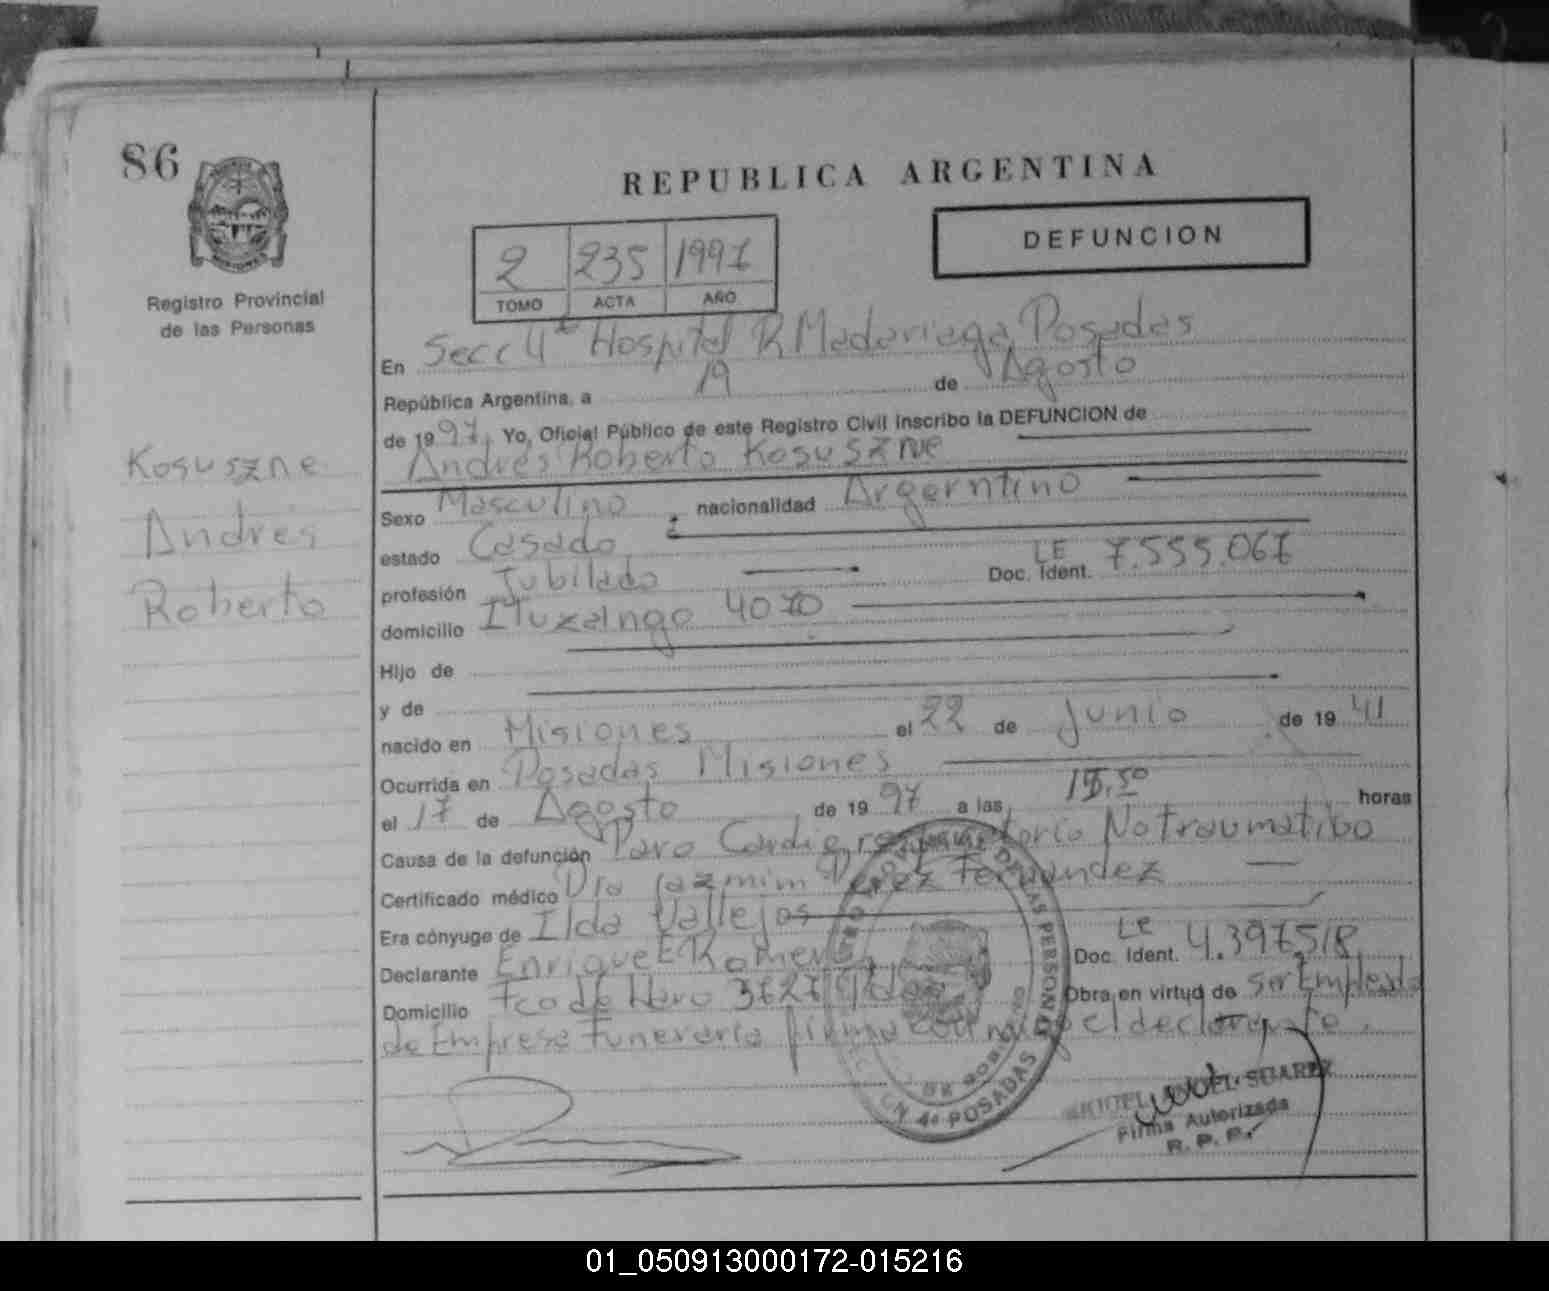 86
REPUBLICA ARGENTINA
Registro Provincial
de las Personas
2 235 1997
TOMO ACTA AÑO
DEFUNCION
En Secc 4ta Hospital R Madariaga Posadas
República Argentina, a 19 de Agosto
de 1997, Yo, Oficial Público de este Registro Civil inscribo la DEFUNCION de
Andres Roberto Kosuszne
Kosuszne
Andres
Roberto
Sexo Masculino nacionalidad Argerntino
estado Casado
profesión Jubilado Doc. Ident. LE 7.555.067
domicilio Ituzaingo 4070
Hijo de
y de
nacido en Misiones el 22 de Junio de 1941
Ocurrida en Posadas Misiones
el 17 de Agosto de 1997 a las horas
Causa de la defunción Paro Cardiorespiratorio No traumatico
Certificado médico Dra Jazmim Perez Fernandez
Era cónyuge de Ilda Vallejos
Declarante Enrique E Romero Doc. Ident. LE 4.397.518
Domicilio Fco de Haro 3727 Obra en virtud de ser Empleado
de Empresa Funeraria firma el declarante.
SUAREZ
Firma Autorizada
R. P. P.
PERSONAS
POSADAS
01_050913000172-015216